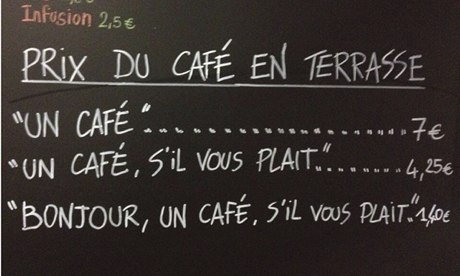 Infusion 2,5€
PRIX DU CAFÉ EN TERRASSE
"UN CAFÉ"........................7€
"UN CAFÉ, S'IL VOUS PLAIT."..........4,25€
"BONJOUR, UN CAFÉ, S'IL VOUS PLAIT."1,40€